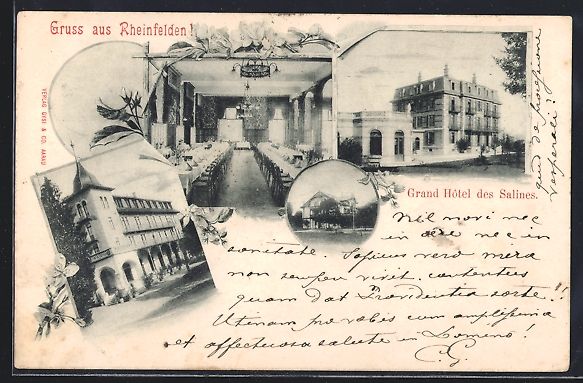 Gruss aus Rheinfelden!
VERLAG GUSI & CO. AARAU
Grand Hôtel des Salines.
Nil novi nec
in die nec in
sanitate. Saepius vero mera
non semper vivit contentus
quam dat Providentia sorte!!
Utinam pro vobis cum amplissima
et affectuosa salute in Domino!
C. G.
quid de